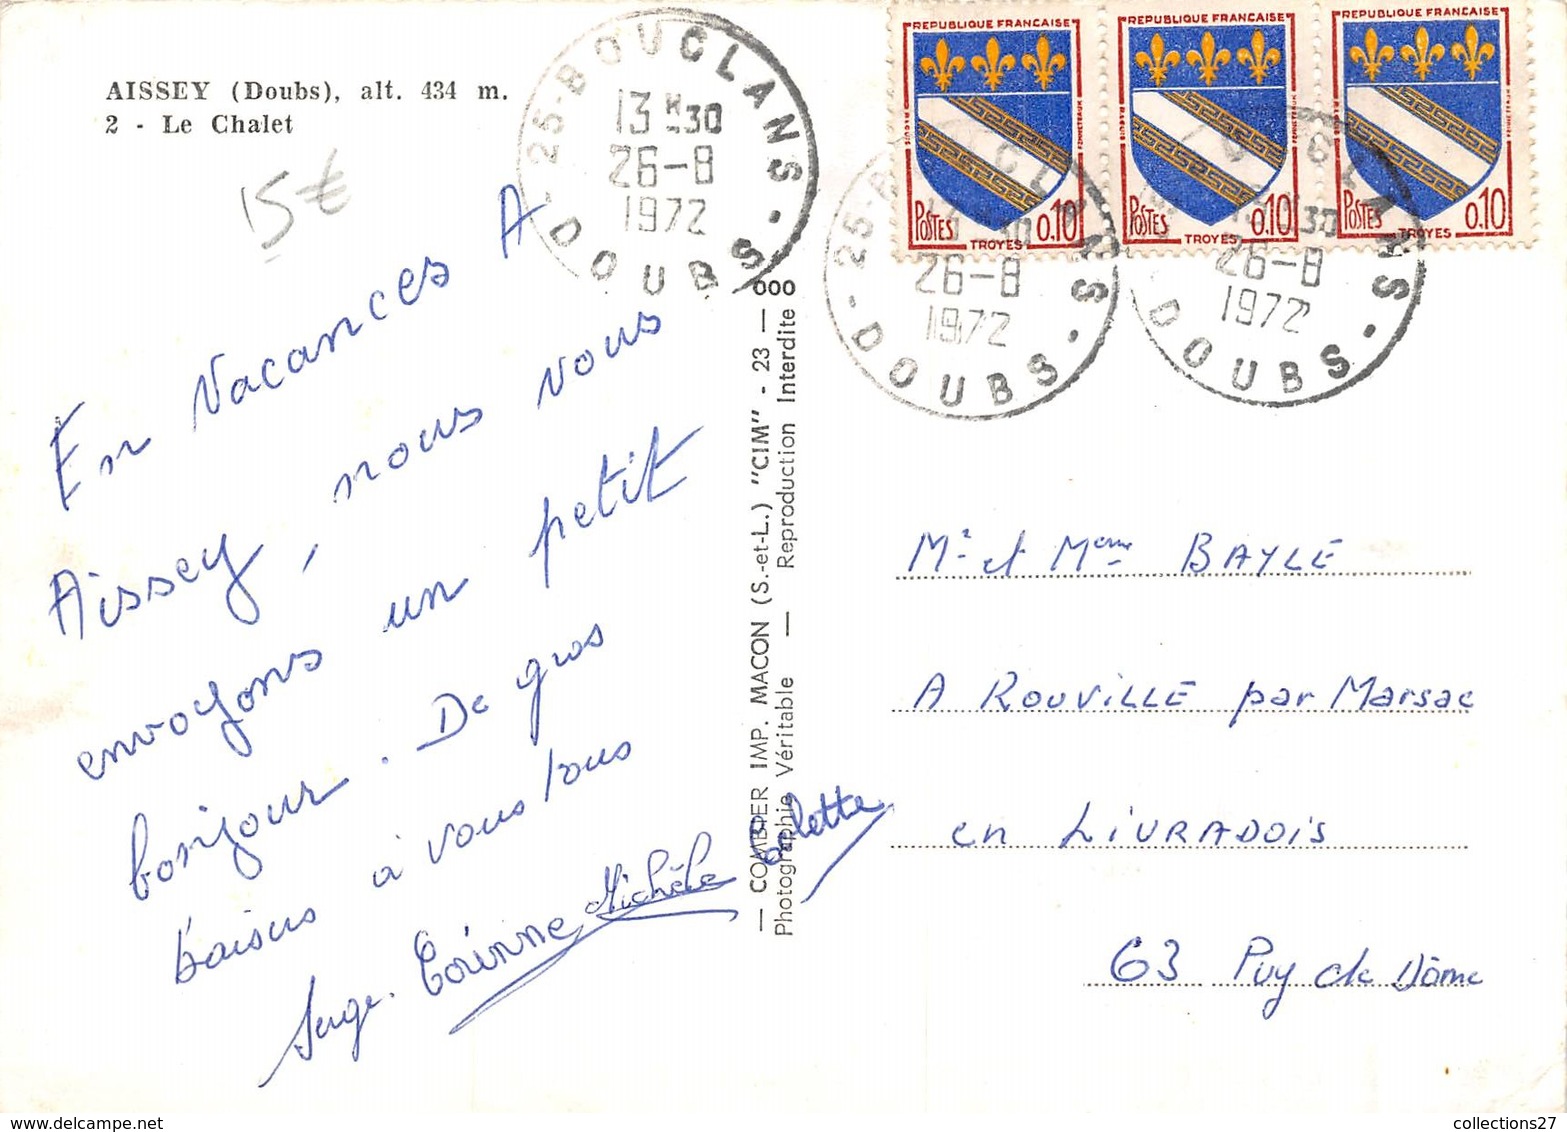 AISSEY (Doubs), alt. 434 m.
2 - Le Chalet
15€
25-BOUCLANS
13 H 30
26-8
1972
-DOUBS-
REPUBLIQUE FRANÇAISE
POSTES
0,10
TROYES
REPUBLIQUE FRANÇAISE
POSTES
0,10
TROYES
REPUBLIQUE FRANÇAISE
POSTES
0,10
TROYES
26-8
1972
-DOUBS-
26-8
1972
DOUBS-
En Vacances A
Aissey, nous vous
envoyons un petit
bonjour. De gros
baisers à vous tous
Serge. Corinne Michèle Colette
— COMBIER IMP. MACON (S.-et-L.) "CIM" - 23 — 000
Photographie Véritable — Reproduction Interdite
Mr et Mme BAYLE
A ROUVILLE par Marsac
en LIVRADOIS
63 Puy de Dôme
collections27